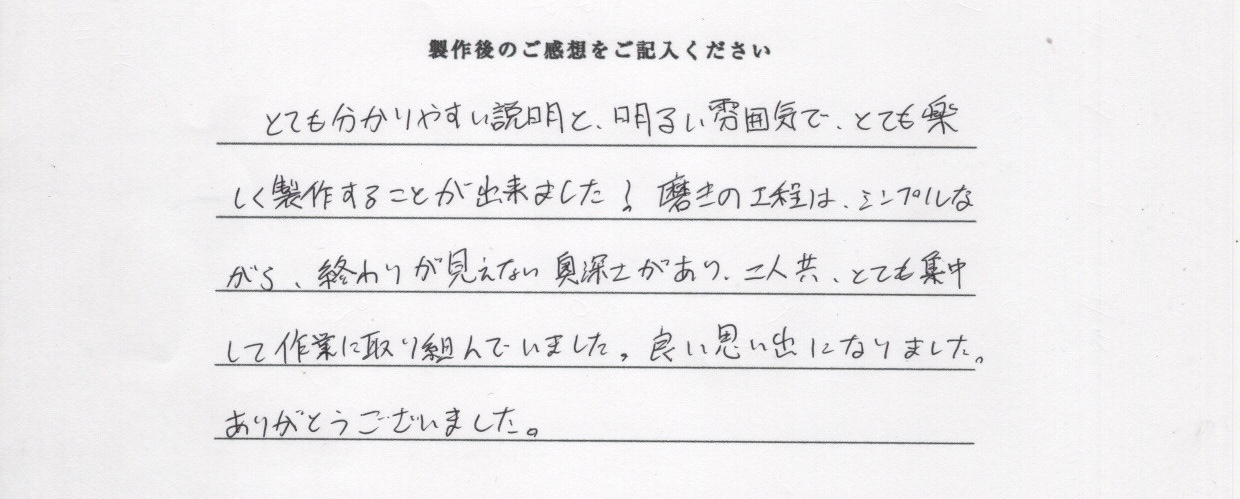 製作後のご感想をご記入ください
とても分かりやすい説明と、明るい雰囲気で、とても楽
しく製作することが出来ました！磨きの工程は、シンプルな
がら、終わりが見えない奥深さがあり、二人共、とても集中
して作業に取り組んでいました。良い思い出になりました。
ありがとうございました。